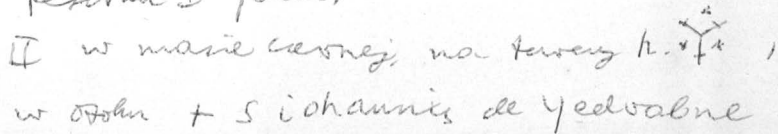 II w masie czarnej, na tarczy h. ,
w otoku + S iohannis de Yedvabne